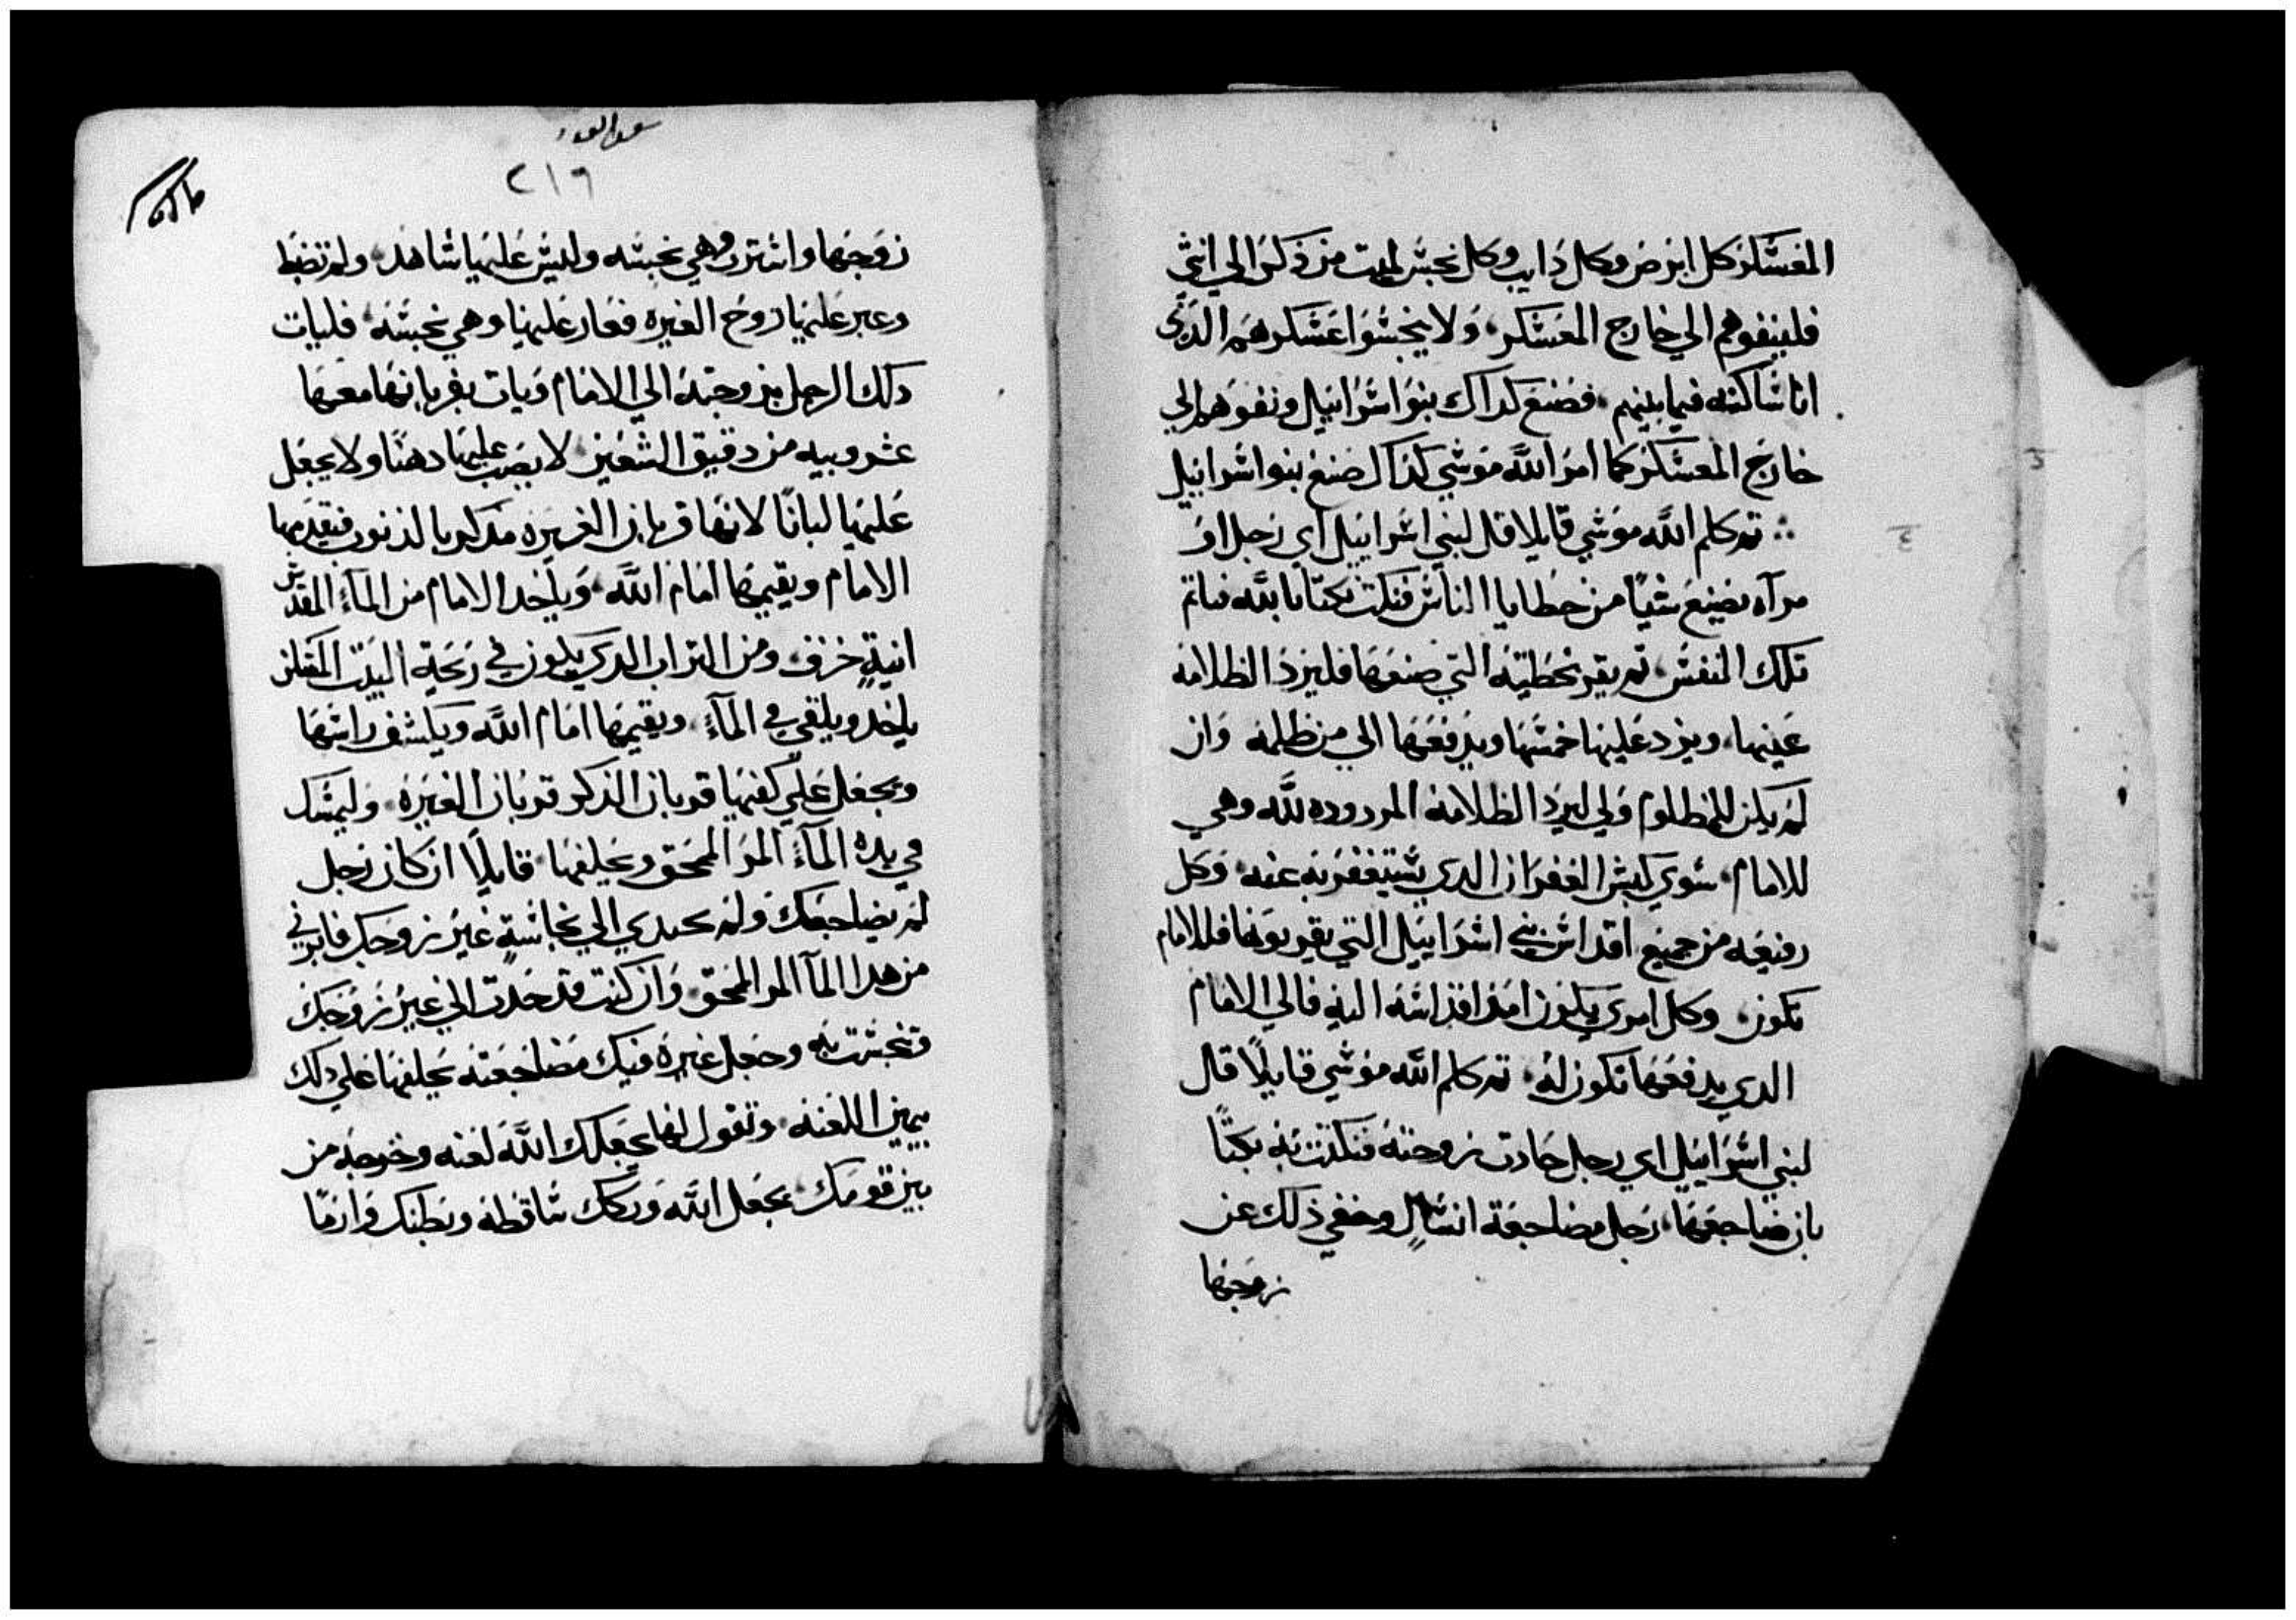 المعسكر كل ابرص وكل دايب وكل نجس لميت من ذكر الي انثي
فلينفوهم الي خارج المعسكر، ولا ينجسوا عسكرهم الذي
انا ساكنه فيما بينهم، فصنع كداك بنوا اسراييل ونفوهم الي
خارج المعسكر كما امر الله موسي كداك صنع بنوا اسراييل
تم كلم الله موسي قايلا قل لبني اسراييل اي رجل او
مرآه يصنع شيا من خطايا الناس فنكث نكتا بالله فياتم
تلك النفس، تم يقر بخطيته التي صنعها فليرد الظلامه
عينها، ويزد عليها خمسها ويدفعها الي من ظلمه وان
لم يكن للمظلوم ولي ليرد الظلامه المردوده لله وهي
للامام، سوي كبش الغفران الدي يستغفر به عنه، وكل
رفيعه من جميع اقداس بني اسراييل التي يقربونها فللامام
تكون، وكل امري يكون اقداسه اليه فالي الامام
الدي يدفعها تكون له، تم كلم الله موسي قايلا قال
لبني اسراييل اي رجل حادت زوجته فنكثت به نكتا
بان ضاجعها، رجل مضاجعة انسال وخفي ذلك عن
زوجها
سفر العدد
٢١٦
زوجها واستترت وهي نجسه وليس عليها شاهد، ولم تضبط
وعبر عليها روح الغيره فغار عليها وهي نجسه، فليات
دلك الرجل بزوجته الي الامام ويات بقربانها معها
عشر ويبه من دقيق الشعير، لا يصب عليها دهنا ولا يجعل
عليها لبانا لانها قربان الغيره مدكر بالذنوب فيقدمها
الامام ويقيمها امام الله، وياخد الامام من المآء المقدس
انية خزف، ومن التراب الدي يكون في رحبة البيت المسكن
ياخد ويلقي في المآء، ويقيمها امام الله ويكشف راسها
ويجعل علي كفيها قربان الدكر قربان الغيره، وليمسك
في يده المآء المر الممحق ويحلفها، قايلا ان كان رجل
لم يضاجعك ولم تحيدي الي نجاسة غير زوجك فابري
من هدا المآ المر الممحق، وان كنت قد حدت الي غير زوجك
وتنجست به وجعل غيره فيك مضاجعته يحلفها علي دلك
بيمين اللعنه، وتقول لها يجعلك الله لعنه وخرجه من
بين قومك، يجعل الله وركك ساقطه وبطنك وارما